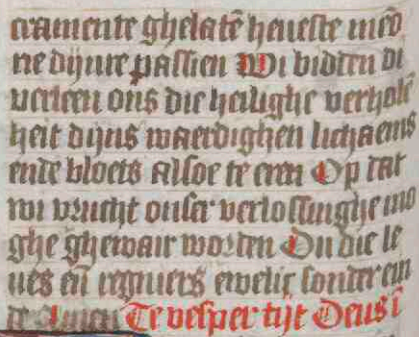 cramente ghelatē heueste med
ne dijnre passien Wi bidden di
verleen ons die heilighe verhole
heit dijns waerdighen lichaems
ende bloets alsoe te eren Op dat
wi vrucht onser verlossinghe mo
ghe ghewair worden Du die le
ues eñ regniers ewelic sonder ein
de Amen Te vesper tijt Deus ī